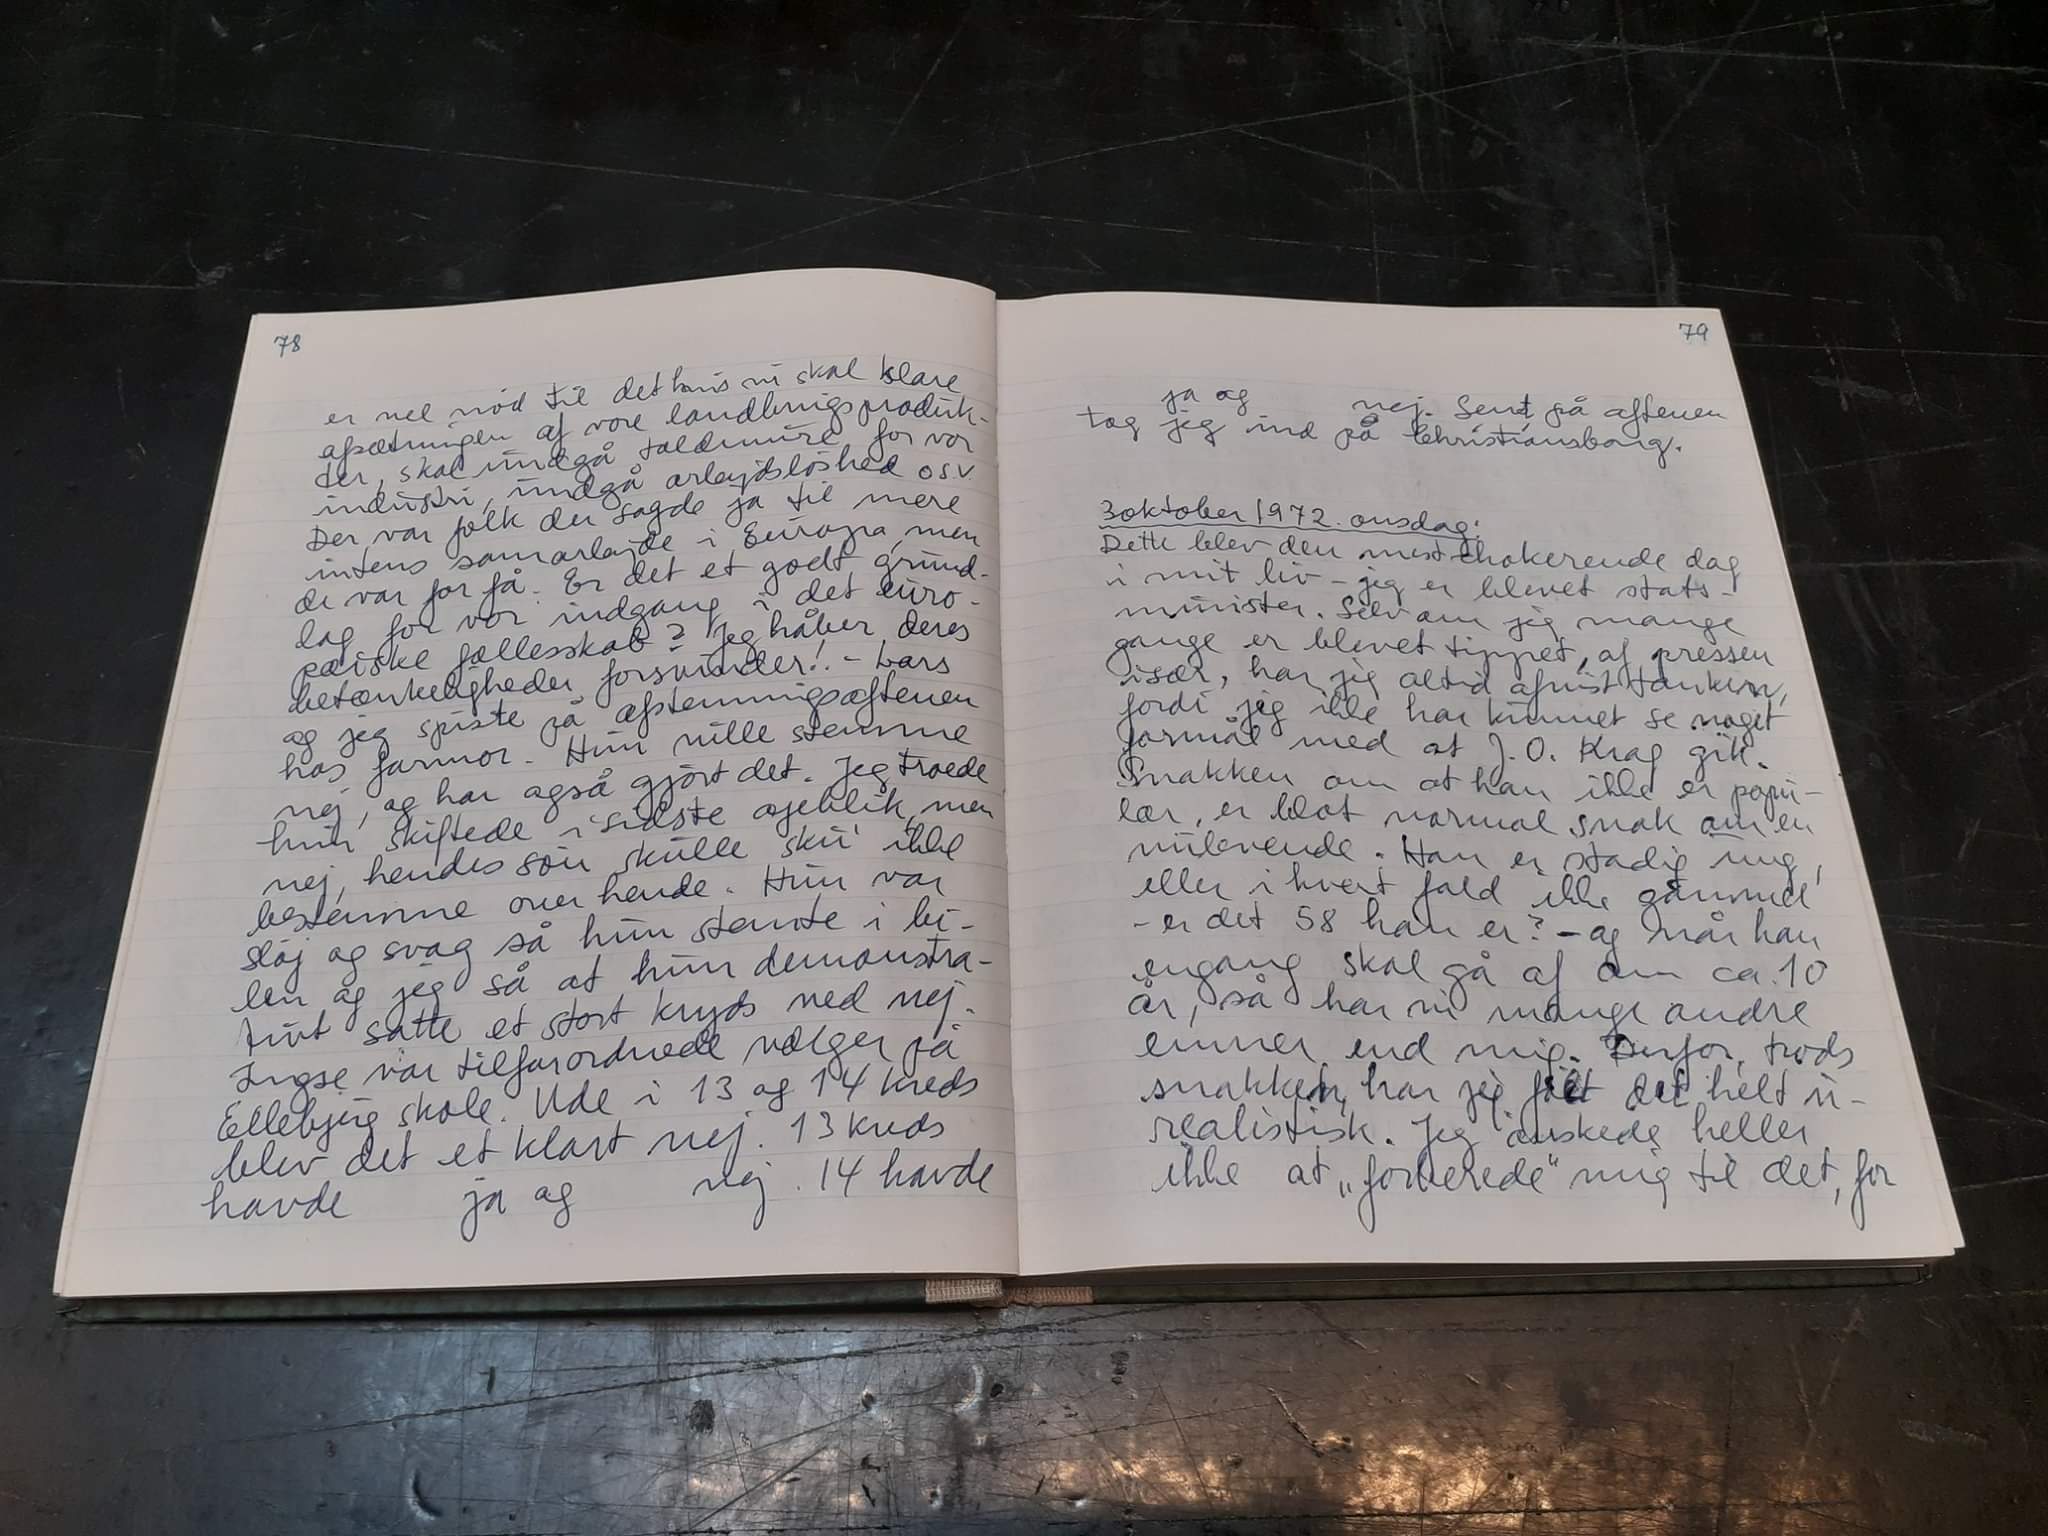 78
er vel nød til det hvis vi skal klare
afsætningen af vore landbrugsproduk-
ter, skal undgå toldmure for vor
industri, undgå arbejdsløshed osv.
Der var folk der sagde ja til mere
intens samarbejde i Europa, men
de var for få. Er det et godt grund-
lag for vor indgang i det euro-
pæiske fællesskab? Jeg håber deres
betænkeligheder forsvinder! - Lars
og jeg spiste på afstemningsaftenen
hos farmor. Hun ville stemme
nej, og har også gjort det. Jeg troede
hun skiftede i sidste øjeblik, men
nej, hendes søn skulle sku' ikke
bestemme over hende. Hun var
sløj og svag så hun stemte i bi-
len og jeg så at hun demonstra-
tivt satte et stort kryds ved nej.
Ingse var tilforordnede vælger på
Ellebjerg skole. Ude i 13 og 14 kreds
blev det et klart nej. 13 kreds
havde ja og nej. 14 havde
79
ja og nej. Sent på aftenen
tog jeg ind på Christiansborg.
3 oktober 1972. onsdag:
Dette blev den mest chokerende dag
i mit liv - jeg er blevet stats-
minister. Selv om jeg mange
gange er blevet tippet, af pressen
især, har jeg altid afvist tanken,
fordi jeg ikke har kunnet se noget
formål med at J.O. Krag gik.
Snakken om at han ikke er popu-
lær, er blot normal snak om en
nulevende. Han er stadig ung,
eller i hvert fald ikke gammel
- er det 58 han er? - og når han
engang skal gå af om ca. 10
år, så har vi mange andre
emner end mig. Derfor, trods
snakken, har jeg følt det helt u-
realistisk. Jeg ønskede heller
ikke at „forberede" mig til det, for